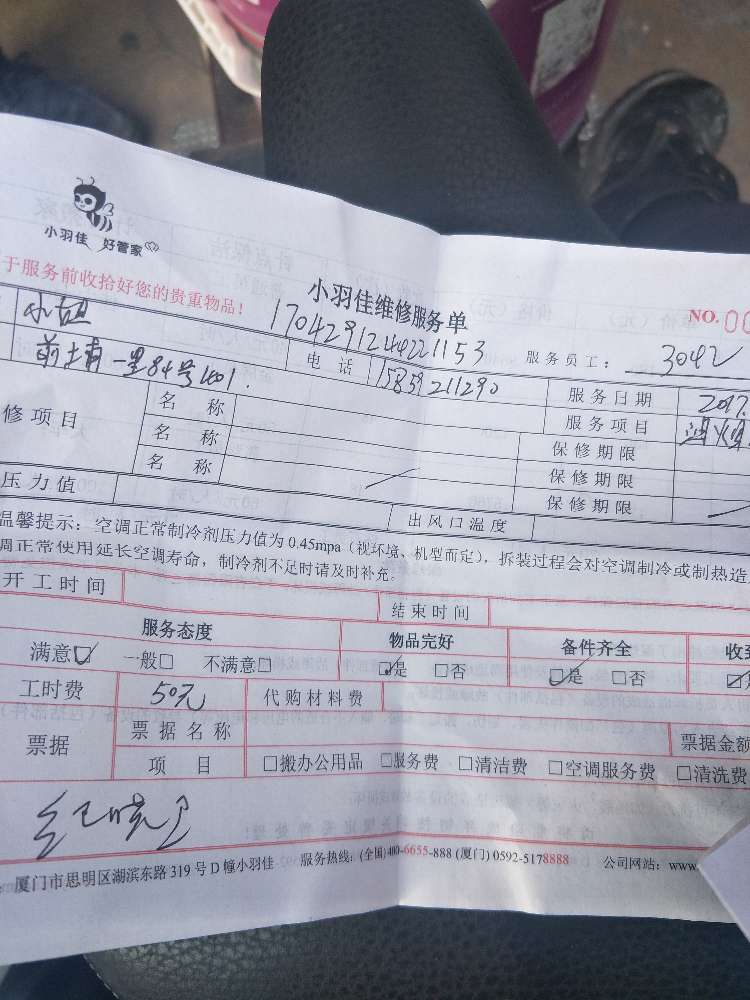 小羽佳 好管家
于服务前收拾好您的贵重物品!
小羽佳维修服务单
NO.00
170429124221153
服务员工: 3042
小姐
前土育一里84号1601.
电话 1585
211290
服务日期 2017.
服务项目
修项目
名称
保修期限
名称
保修期限
名称
保修期限
压力值
出风口温度
温馨提示:空调正常制冷剂压力值为0.45mpa(视环境、机型而定),拆装过程会对空调制冷或制热造
调正常使用延长空调寿命,制冷剂不足时请及时补充。
开工时间
结束时间
服务态度 物品完好 备件齐全 收
满意☑ 一般□ 不满意□ ☑是 □否 ☑是 □否
工时费 50元 代购材料费
票据 票据名称 票据金额
项目 □搬办公用品 □服务费 □清洁费 □空调服务费 □清洗费
厦门市思明区湖滨东路319号D幢小羽佳 服务热线:(全国)400-6655-888 (厦门)0592-5178888 公司网站:www.